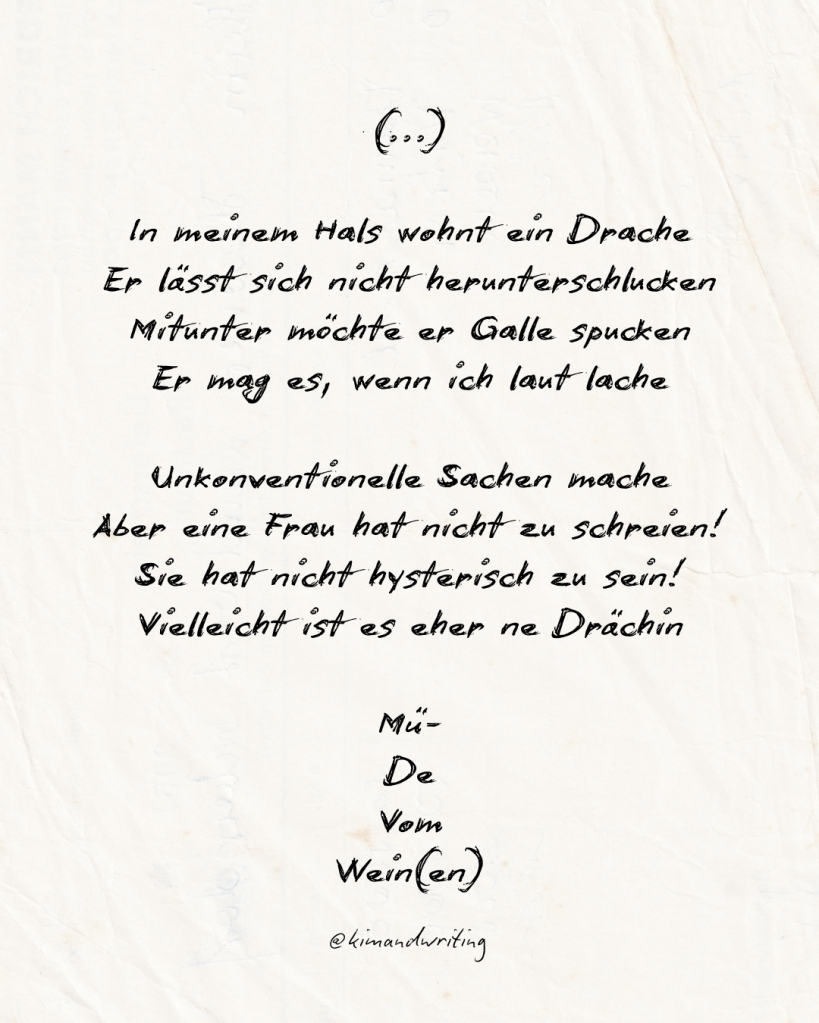 (...)
In meinem Hals wohnt ein Drache
Er lässt sich nicht herunterschlucken
Mitunter möchte er Galle spucken
Er mag es, wenn ich laut lache
Unkonventionelle Sachen mache
Aber eine Frau hat nicht zu schreien!
Sie hat nicht hysterisch zu sein!
Vielleicht ist es eher ne Drächin
Mü-
De
Vom
Wein(en)
@kimandwriting